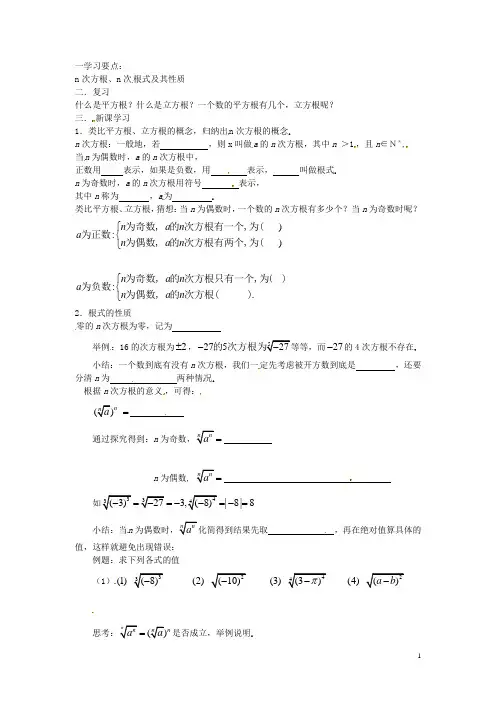 一学习要点:
n次方根、n次根式及其性质
二.复习
什么是平方根?什么是立方根?一个数的平方根有几个,立方根呢?
三.新课学习
1.类比平方根、立方根的概念,归纳出n次方根的概念.
n次方根:一般地,若 ,则x叫做a的n次方根,其中n >1,且n∈N*.
当n为偶数时,a的n次方根中,
正数用 表示,如果是负数,用 表示, 叫做根式.
n为奇数时,a的n次方根用符号 表示,
其中n称为 ,a为 .
类比平方根、立方根,猜想:当n为偶数时,一个数的n次方根有多少个?当n为奇数时呢?
a为正数:{n为奇数, a的n次方根有一个,为( )
n为偶数, a的n次方根有两个,为( )
a为负数:{n为奇数, a的n次方根只有一个,为( )
n为偶数, a的n次方根( ).
2.根式的性质
零的n次方根为零,记为
举例:16的次方根为±2,−27的5次方根为⁵√−27等等,而−27的4次方根不存在.
小结:一个数到底有没有n次方根,我们一定先考虑被开方数到底是 ,还要
分清n为 两种情况.
根据n次方根的意义,可得:
(ⁿ√a)ⁿ =
通过探究得到:n为奇数,ⁿ√aⁿ =
n为偶数, ⁿ√aⁿ =
如³√(−3)³ = ³√−27 = −3, ⁴√(−8)⁴ =| −8 |= 8
小结:当n为偶数时,ⁿ√aⁿ化简得到结果先取 ,再在绝对值算具体的
值,这样就避免出现错误:
例题:求下列各式的值
(1) (1) ³√(−8)³ (2) √(−10)² (3) ⁴√(3−π)⁴ (4) √(a−b)²
思考:ⁿ√aⁿ = (ⁿ√a)ⁿ是否成立,举例说明.
1